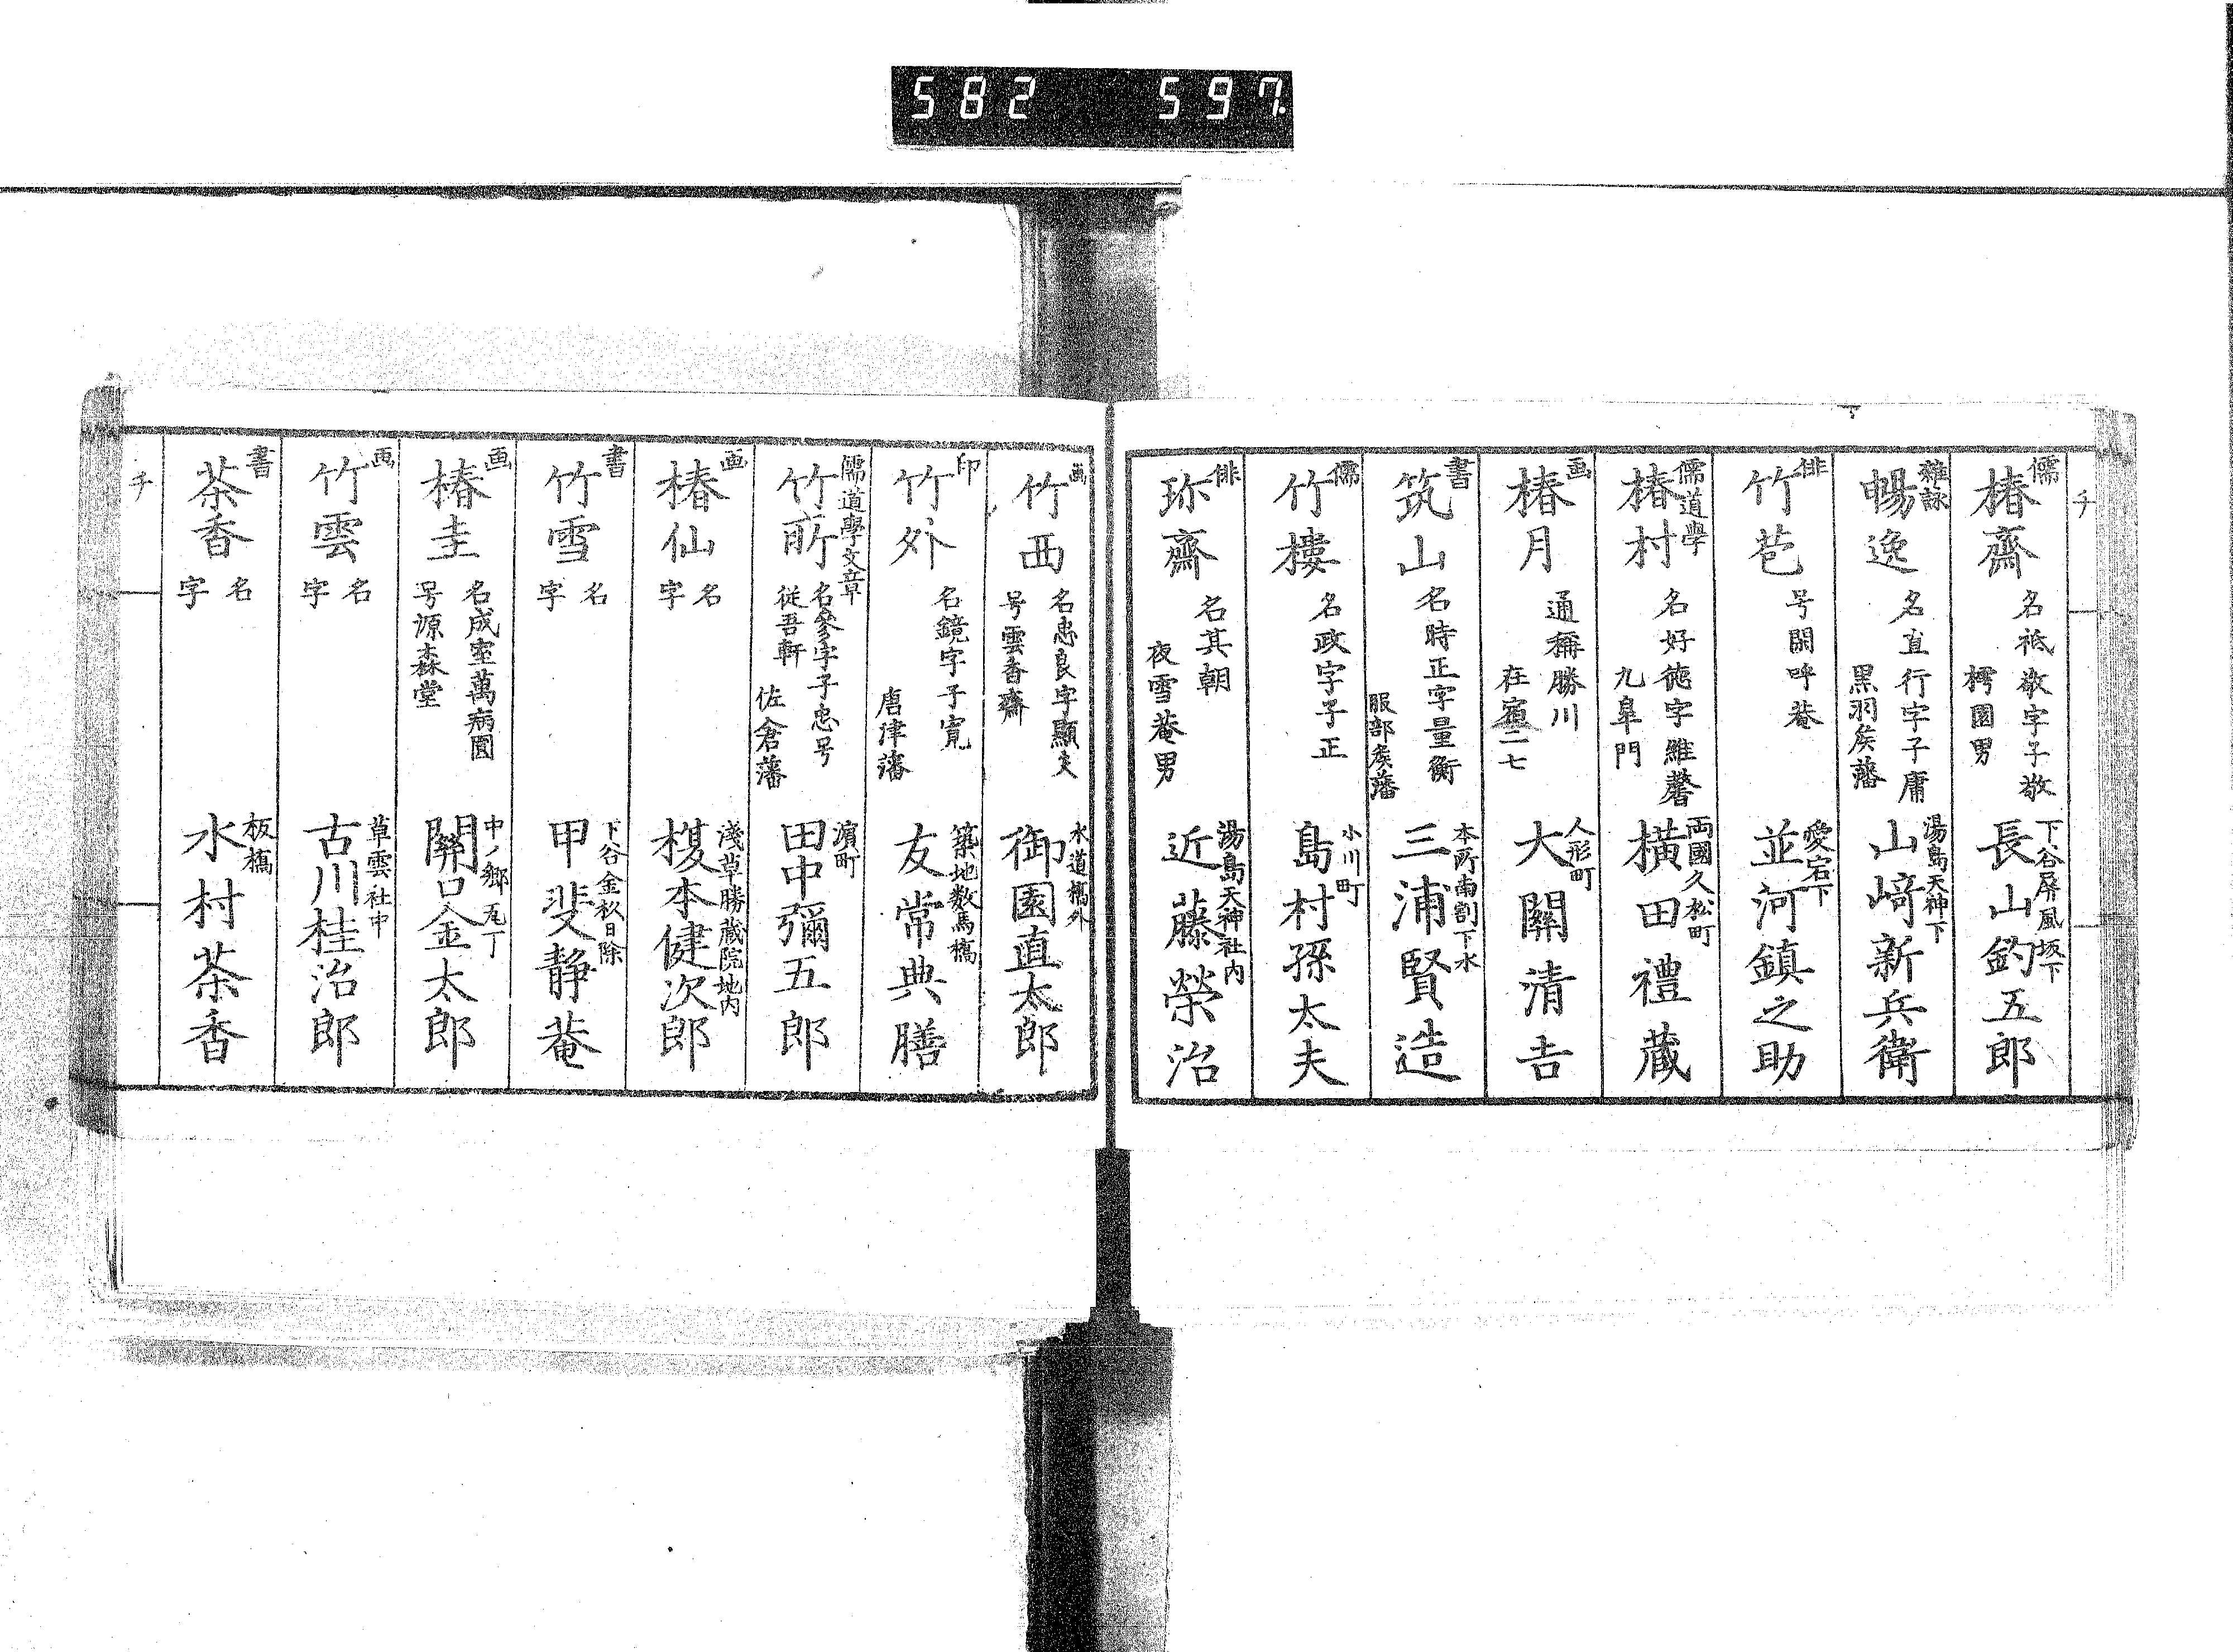 582 597
チ
儒
椿齋
名祗敬字子敬
樗園男
下谷屏風坂下
長山釣五郎
雜詠
暢逸
名直行字子庸
黒羽矦藩
湯島天神下
山﨑新兵衛
俳
竹苞
号閑呼菴
愛宕下
並河鎮之助
儒道學
椿村
名好徳字維馨
九皐門
両國久松町
橫田禮蔵
画
椿月
通稱勝川
在宿二七
人形町
大關清吉
書
筑山
名時正字量衡
服部矦藩
本所南割下水
三浦賢造
儒
竹樓
名政字子正
小川町
島村孫太夫
俳
珎齋
名其朝
夜雪菴男
湯島天神社内
近藤榮治
画
竹西
名忠良字顯夫
号雲香齋
水道橋外
御園直太郎
印
竹外
名鏡字子寛
唐津藩
築地数馬橋
友常典膳
儒道學文章
竹所
名參字子忠号
従吾軒
佐倉藩
濵町
田中彌五郎
画
椿仙
名
字
淺草勝蔵院地内
榎本健次郎
書
竹雪
名
字
下谷金杦日除
甲斐静菴
画
椿圭
名成室萬病園
号源森堂
中ノ郷瓦丁
關口金太郎
画
竹雲
名
字
草雲社中
古川桂治郎
書
茶香
名
字
板橋
水村茶香
チ